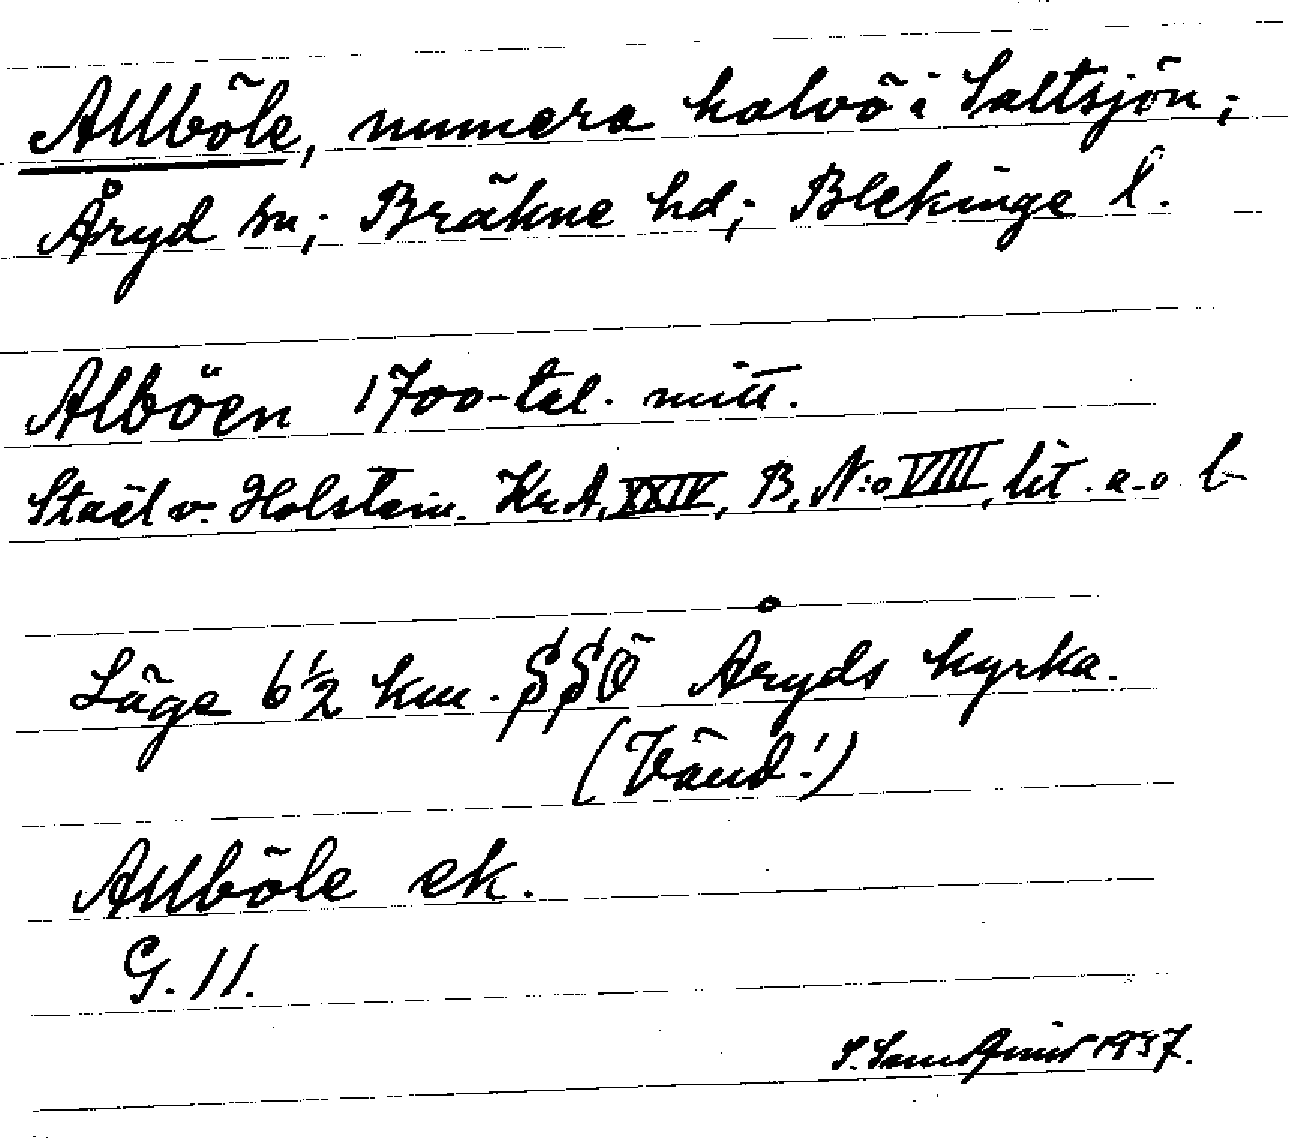 Allböle, numera halvö i Saltsjön;
Åryd sn; Bräkne hd; Blekinge l.
Alböen 1700-tal. mitt.
Staël v. Holstein. Kr.A. XXIV, B, N:o VIII, lit. a. o b
Läge 6½ km. SSÖ Åryds kyrka.
(Vänd!)
Allböle ek.
G. 11.
S. 1937.